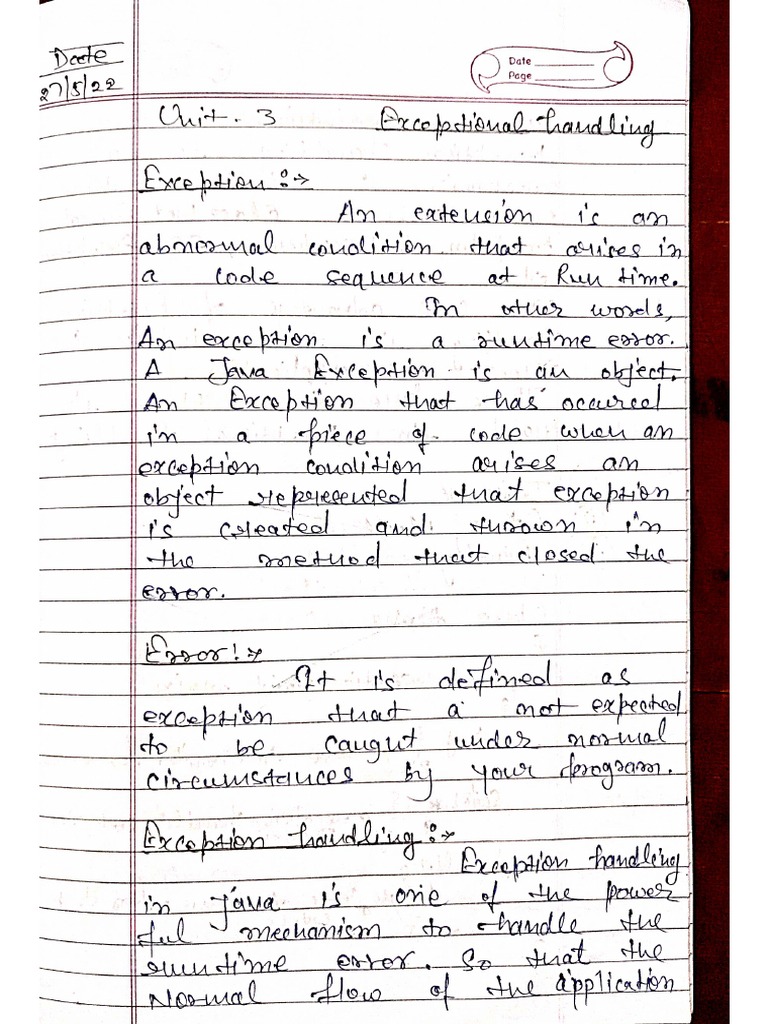 Date
27/5/22
Date
Page
Unit. 3 Exceptional handling
Exception :->
An extension is an
abnormal condition that arises in
a code sequence at Run time.
In other words,
An exception is a runtime error.
A Java Exception is an object.
An Exception that has occured
in a piece of code when an
exception condition arises an
object represented that exception
is created and thrown in
the method that closed the
error.
Error:->
It is defined as
exception that a not expected
to be caugut under normal
circumstances by your program.
Exception handling:->
Exception handling
in Java is one of the power
ful mechanism to handle the
runtime error. So that the
Normal flow of the application